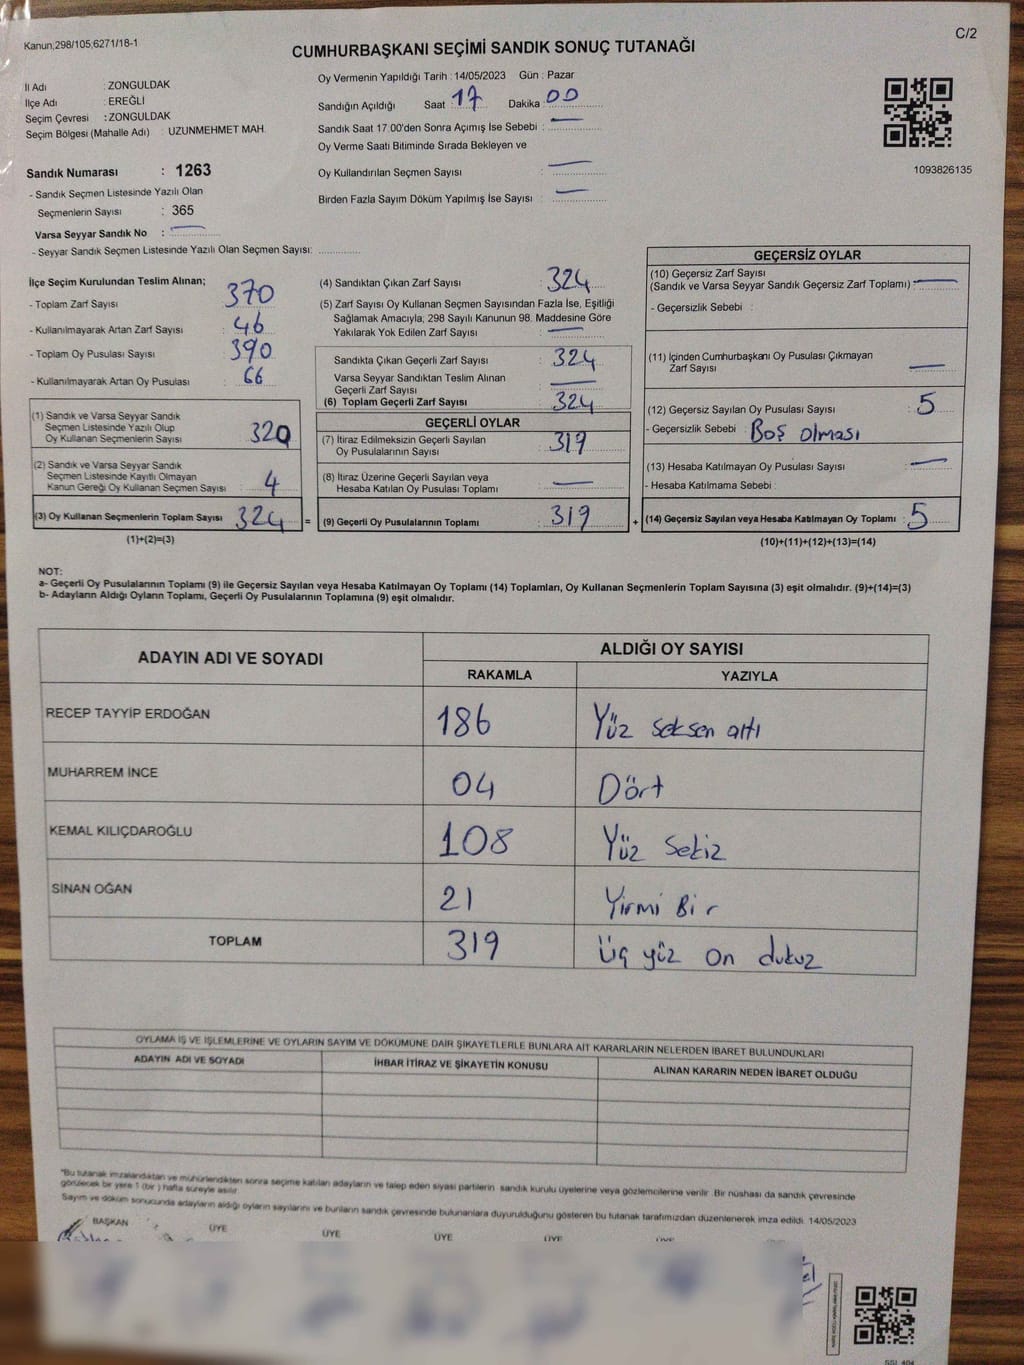 Kanun;298/105;6271/18-1
C/2
CUMHURBAŞKANI SEÇİMİ SANDIK SONUÇ TUTANAĞI
İl Adı : ZONGULDAK
İlçe Adı : EREĞLİ
Seçim Çevresi : ZONGULDAK
Seçim Bölgesi (Mahalle Adı) : UZUNMEHMET MAH.
Sandık Numarası : 1263
- Sandık Seçmen Listesinde Yazılı Olan
Seçmenlerin Sayısı : 365
Varsa Seyyar Sandık No :
- Seyyar Sandık Seçmen Listesinde Yazılı Olan Seçmen Sayısı:
Oy Vermenin Yapıldığı Tarih : 14/05/2023 Gün : Pazar
Sandığın Açıldığı Saat : 17 Dakika : 00
Sandık Saat 17:00'den Sonra Açımış İse Sebebi :
Oy Verme Saati Bitiminde Sırada Bekleyen ve
Oy Kullandırılan Seçmen Sayısı :
Birden Fazla Sayım Döküm Yapılmış İse Sayısı :
1093826135
İlçe Seçim Kurulundan Teslim Alınan;
- Toplam Zarf Sayısı : 370
- Kullanılmayarak Artan Zarf Sayısı : 46
- Toplam Oy Pusulası Sayısı : 390
- Kullanılmayarak Artan Oy Pusulası : 66
(1) Sandık ve Varsa Seyyar Sandık
Seçmen Listesinde Yazılı Olup
Oy Kullanan Seçmenlerin Sayısı 320
(2) Sandık ve Varsa Seyyar Sandık
Seçmen Listesinde Kayıtlı Olmayan
Kanun Gereği Oy Kullanan Seçmen Sayısı 4
(3) Oy Kullanan Seçmenlerin Toplam Sayısı 324 =
(1)+(2)=(3)
(4) Sandıktan Çıkan Zarf Sayısı : 324
(5) Zarf Sayısı Oy Kullanan Seçmen Sayısından Fazla İse, Eşitliği
Sağlamak Amacıyla; 298 Sayılı Kanunun 98. Maddesine Göre
Yakılarak Yok Edilen Zarf Sayısı :
Sandıkta Çıkan Geçerli Zarf Sayısı : 324
Varsa Seyyar Sandıktan Teslim Alınan
Geçerli Zarf Sayısı :
(6) Toplam Geçerli Zarf Sayısı : 324
GEÇERLİ OYLAR
(7) İtiraz Edilmeksizin Geçerli Sayılan
Oy Pusulalarının Sayısı : 319
(8) İtiraz Üzerine Geçerli Sayılan veya
Hesaba Katılan Oy Pusulası Toplamı :
(9) Geçerli Oy Pusulalarının Toplamı : 319 +
GEÇERSİZ OYLAR
(10) Geçersiz Zarf Sayısı
(Sandık ve Varsa Seyyar Sandık Geçersiz Zarf Toplamı) :
- Geçersizlik Sebebi :
(11) İçinden Cumhurbaşkanı Oy Pusulası Çıkmayan
Zarf Sayısı :
(12) Geçersiz Sayılan Oy Pusulası Sayısı : 5
- Geçersizlik Sebebi : Boş olması
(13) Hesaba Katılmayan Oy Pusulası Sayısı :
- Hesaba Katılmama Sebebi :
(14) Geçersiz Sayılan veya Hesaba Katılmayan Oy Toplamı : 5
(10)+(11)+(12)+(13)=(14)
NOT:
a- Geçerli Oy Pusulalarının Toplamı (9) ile Geçersiz Sayılan veya Hesaba Katılmayan Oy Toplamı (14) Toplamları, Oy Kullanan Seçmenlerin Toplam Sayısına (3) eşit olmalıdır. (9)+(14)=(3)
b- Adayların Aldığı Oyların Toplamı, Geçerli Oy Pusulalarının Toplamına (9) eşit olmalıdır.
ADAYIN ADI VE SOYADI ALDIĞI OY SAYISI
RAKAMLA YAZIYLA
RECEP TAYYİP ERDOĞAN 186 Yüz seksen altı
MUHARREM İNCE 04 Dört
KEMAL KILIÇDAROĞLU 108 Yüz Sekiz
SİNAN OĞAN 21 Yirmi Bir
TOPLAM 319 Üç yüz on dukuz
OYLAMA İŞ VE İŞLEMLERİNE VE OYLARIN SAYIM VE DÖKÜMÜNE DAİR ŞİKAYETLERLE BUNLARA AİT KARARLARIN NELERDEN İBARET BULUNDUKLARI
ADAYIN ADI VE SOYADI İHBAR İTİRAZ VE ŞİKAYETİN KONUSU ALINAN KARARIN NEDEN İBARET OLDUĞU
"Bu tutanak imzalandıktan ve mühürlendikten sonra seçime katılan adayların ve talep eden siyasi partilerin sandık kurulu üyelerine veya gözlemcilerine verilir. Bir nüshası da sandık çevresinde
görülecek bir yere 1 (bir ) hafta süreyle asılır.
Sayım ve döküm sonucunda adayların aldığı oyların sayılarını ve bunların sandık çevresinde bulunanlara duyurulduğunu gösteren bu tutanak tarafımızdan düzenlenerek imza edildi. 14/05/2023
BAŞKAN ÜYE ÜYE ÜYE ÜYE ÜYE